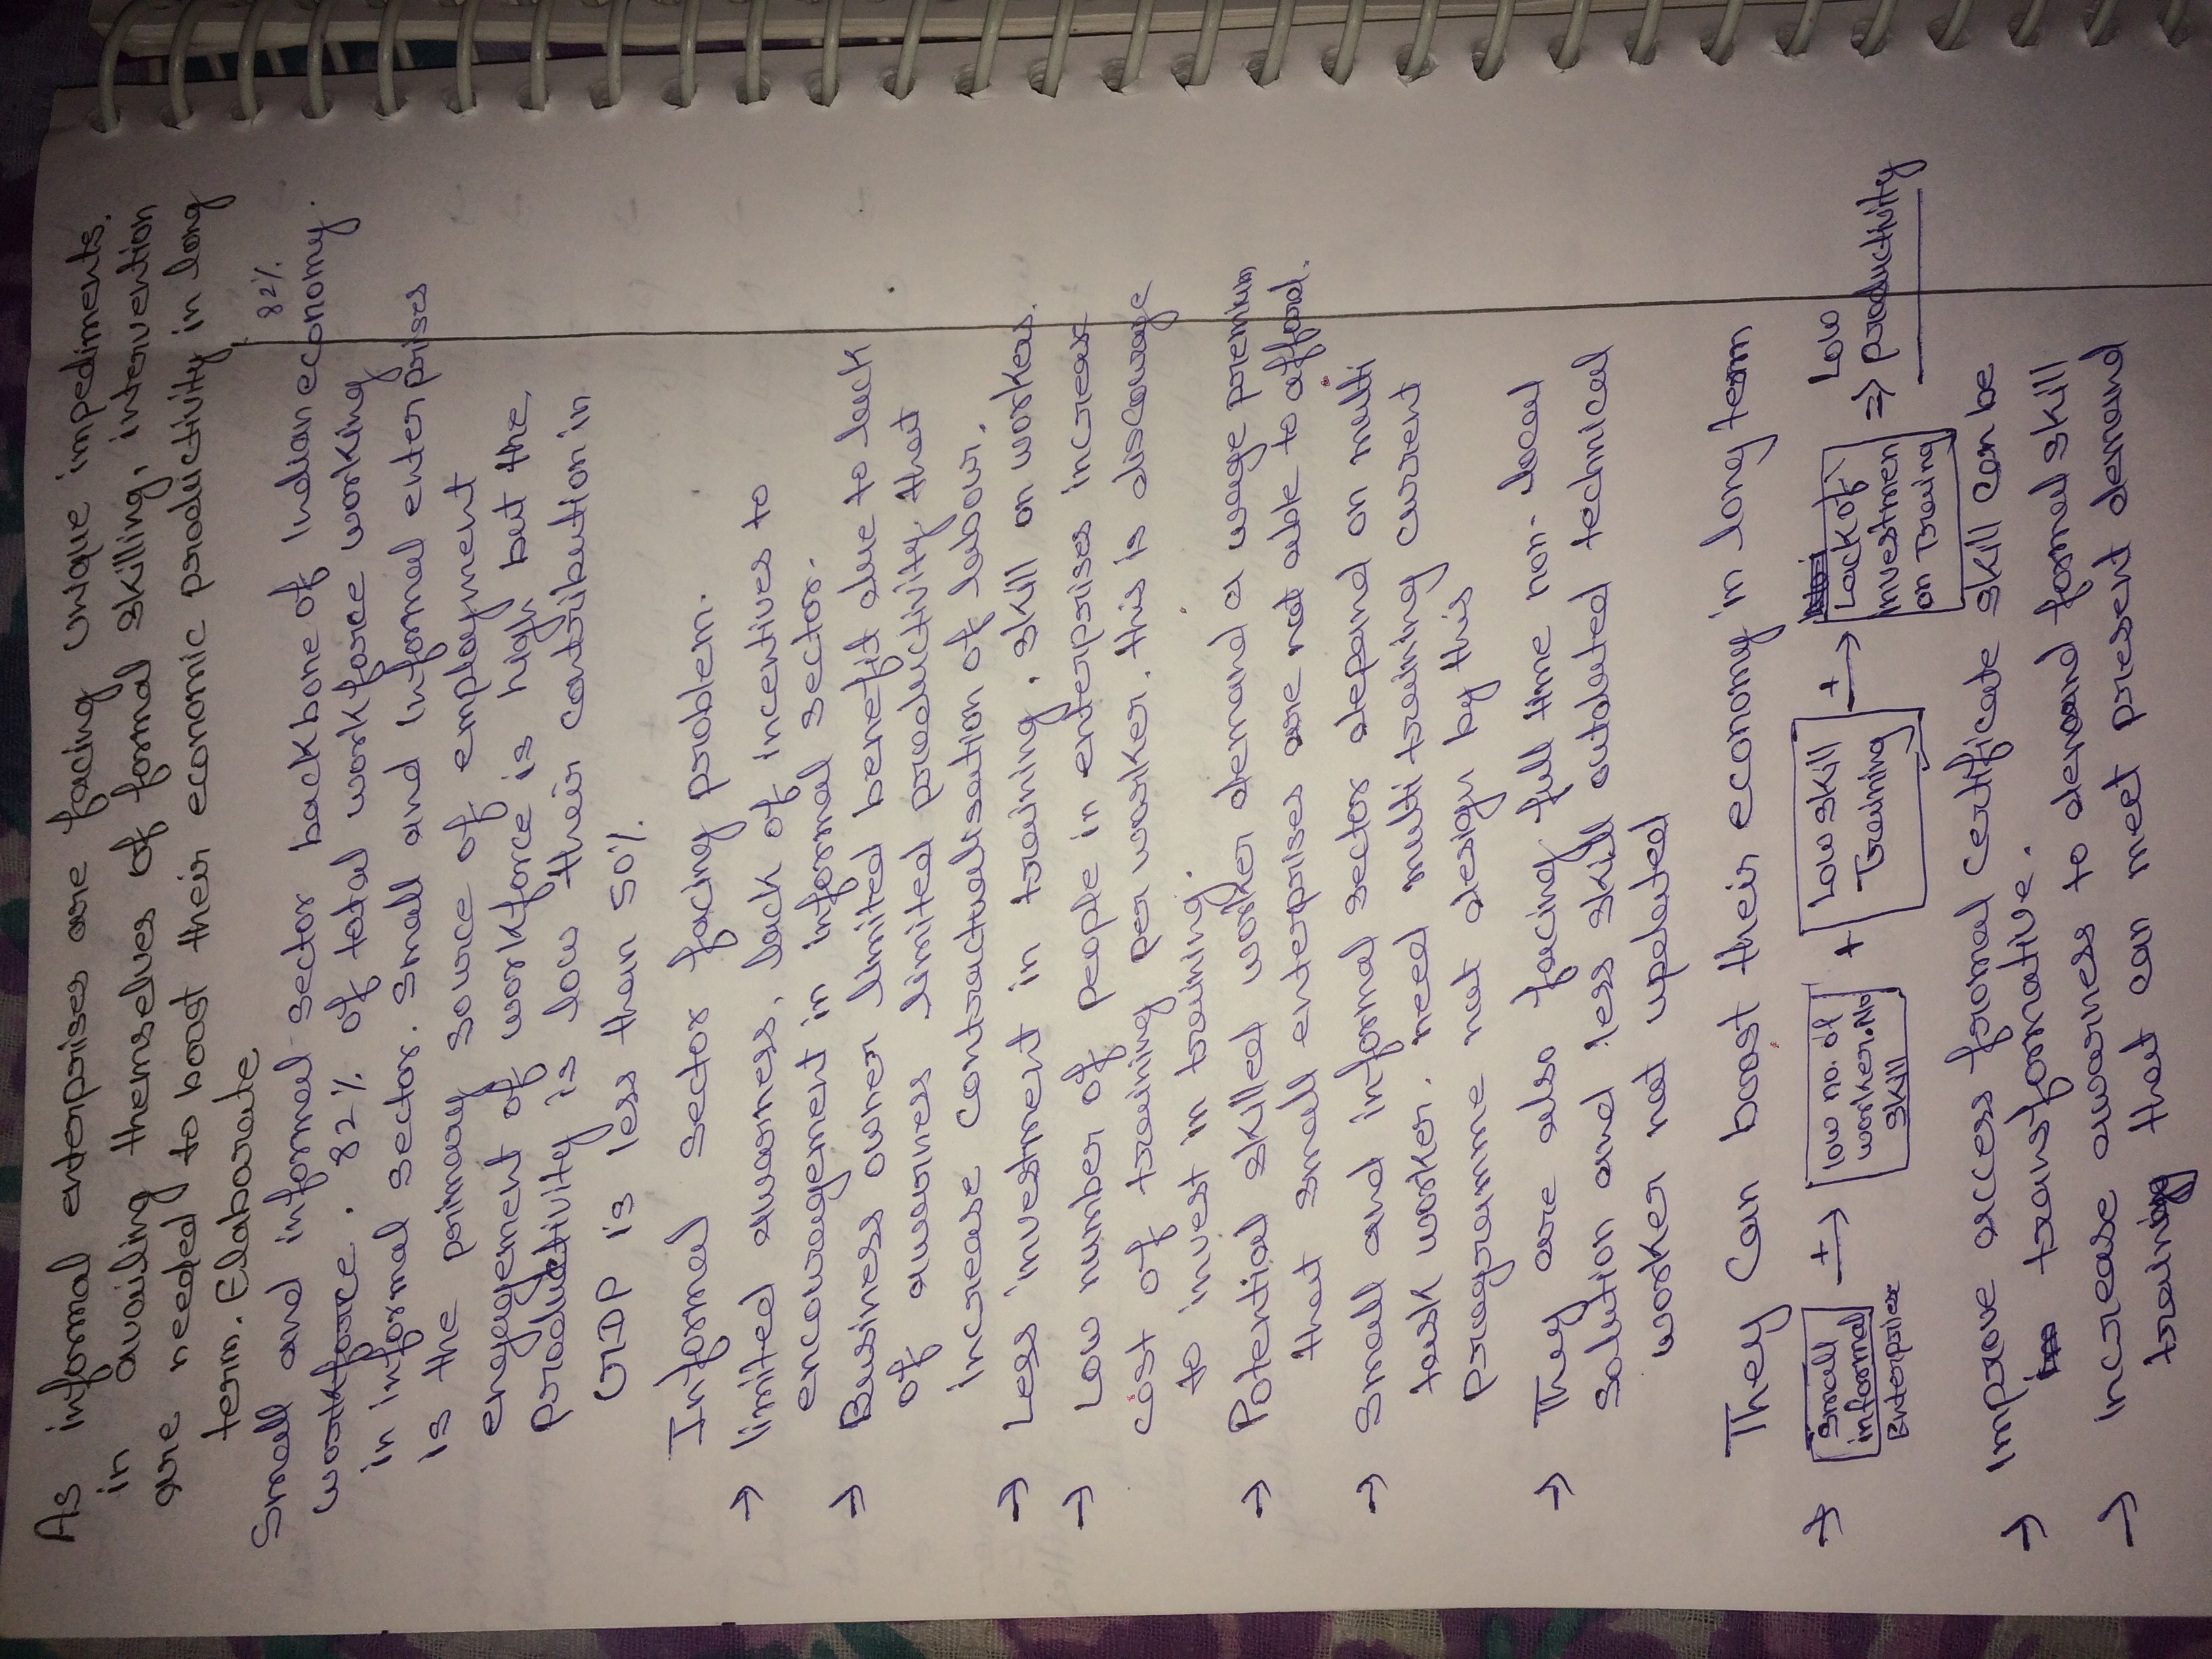 As informal enterprises are facing unique impediments.
in availing themselves of formal skilling, intervention
are needed to boost their economic productivity in long
term. Elaborate
82%
Small and informal sector backbone of Indian economy.
workforce. 82% of total workforce working
in informal sector. Small and informal enterprises
is the primary source of employment
engagement of workforce is high but the,
productivity is low their contribution in
GDP is less than 50%
Informal sector facing problem.
→ limited awarness, lack of incentives to
encouragement in informal sector.
→ Business owner limited benefit due to lack
of awarness limited productivity that
increase contractualisation of labour.
→ Less investment in training, skill on workers.
→ Low number of people in enterprises increase
cost of training per worker. this is discourage
to invest in training.
→ Potential skilled worker demand a wage premium
that small enterprises are not able to afford.
→ Small and informal sector depand on multi
task worker. need multi training current
programme not design by this
→ They are also facing full time non-local
solution and less skill outdated technical
worker not updated
They can boost their economy in long term
→ Small informal Enterprises + → low no. of worker.No skill + Low skill Training + → Lack of investmen on Traing => Low productivity
→ Improve access fromal certificate skill can be
transformative.
→ increase awarness to demand formal skill
training that can meet present demand